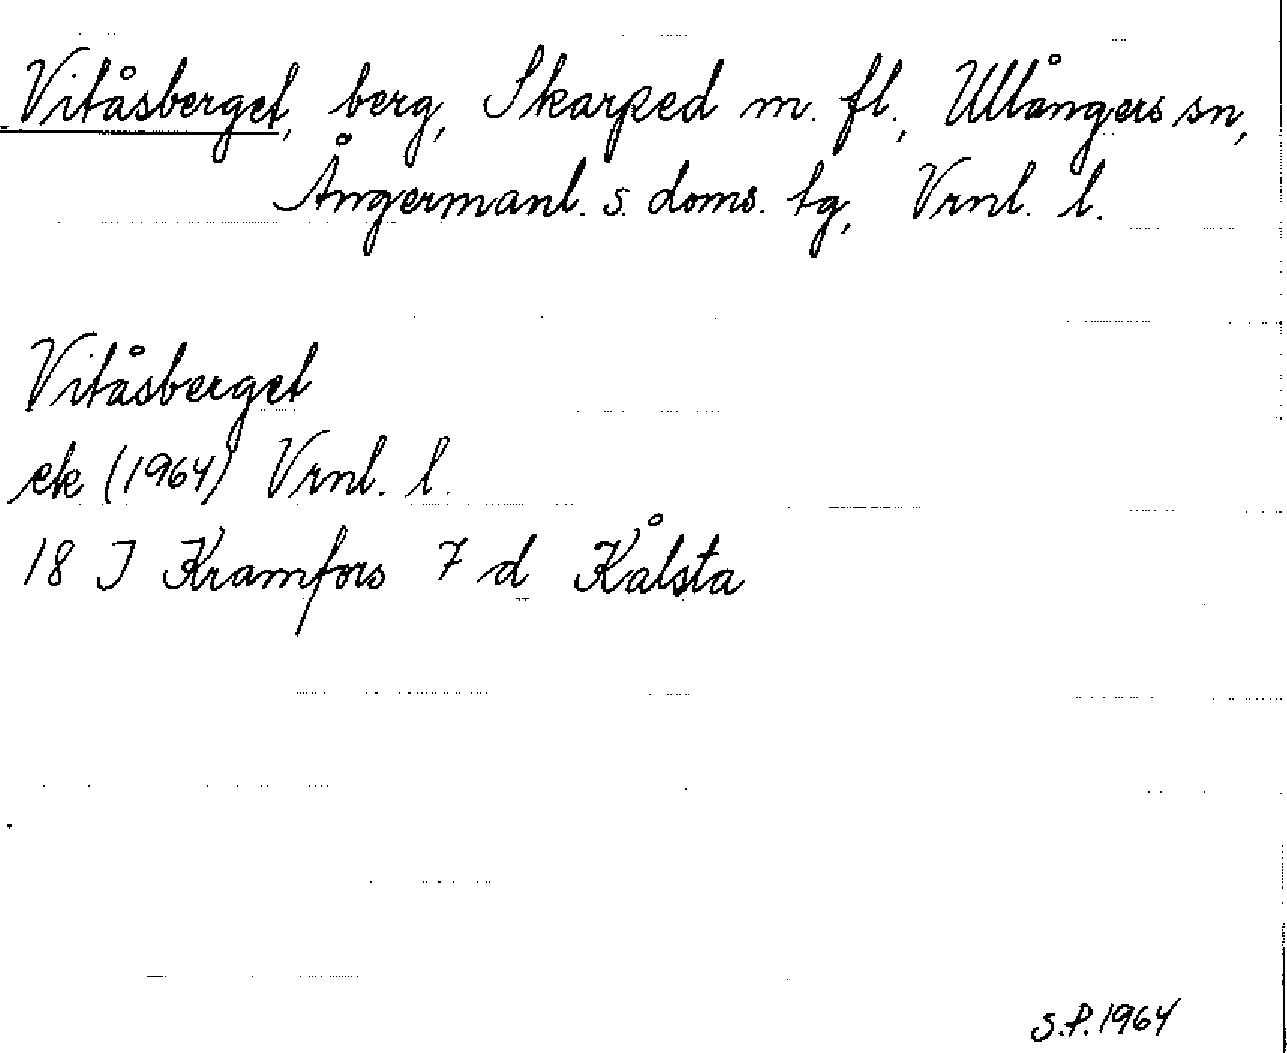 Vitåsberget, berg, Skarped m. fl., Ullångers sn,
Ångermanl. s. doms. tg, Vrnl. l.
Vitåsberget
ek (1964) Vrnl. l.
18 J Kramfors 7 d Kålsta
S.P. 1964